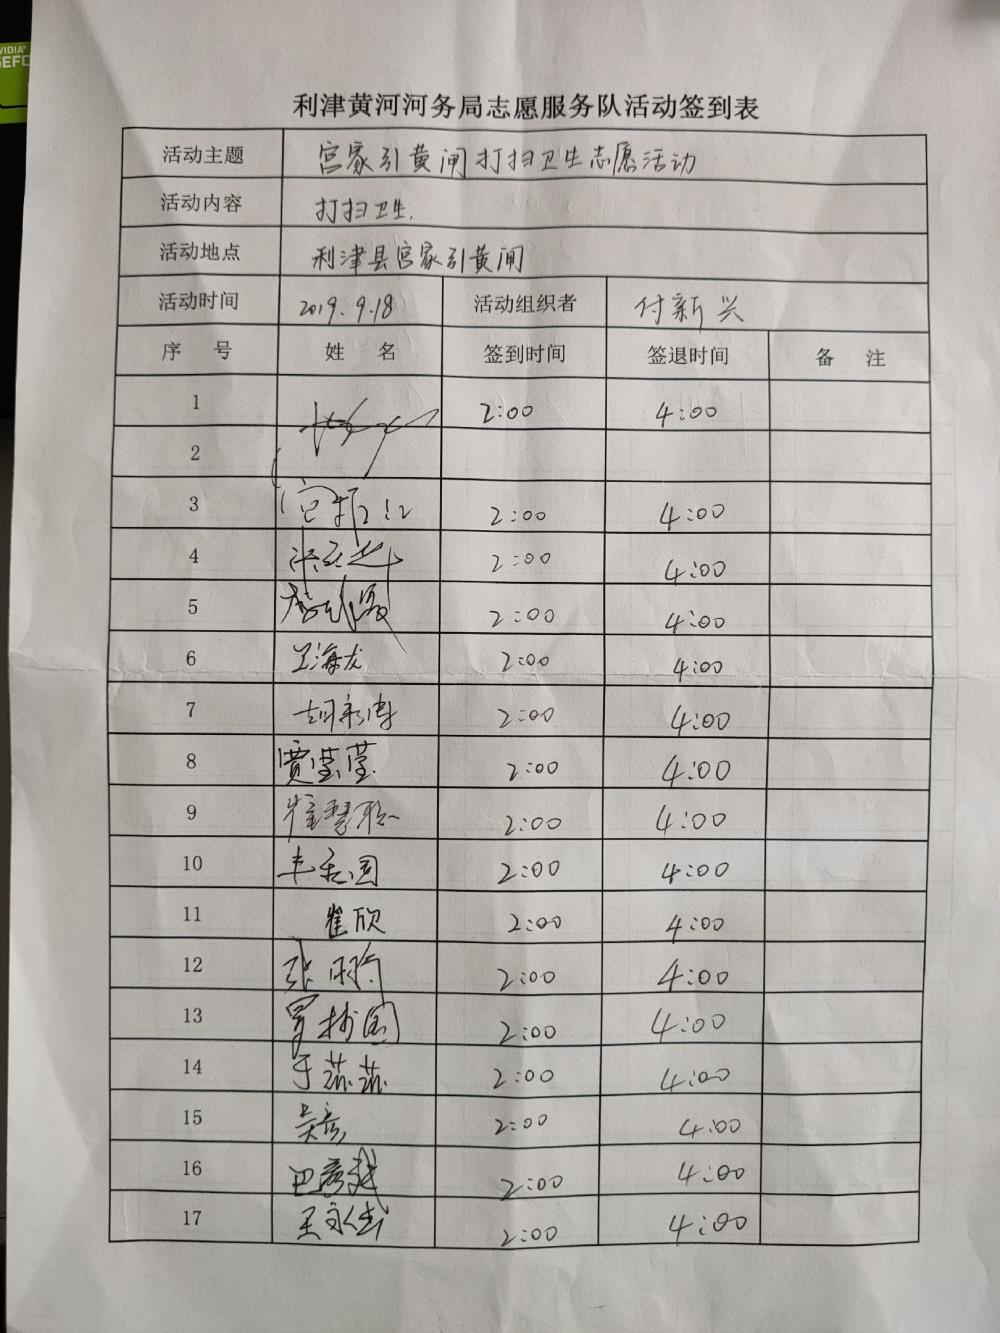 利津黄河河务局志愿服务队活动签到表
活动主题 宫家引黄闸打扫卫生志愿活动
活动内容 打扫卫生.
活动地点 利津县宫家引黄闸
活动时间 2019.9.18 活动组织者 付新兴
序 号 姓 名 签到时间 签退时间 备 注
1 2:00 4:00
2
3 2:00 4:00
4 2:00 4:00
5 2:00 4:00
6 王海龙 2:00 4:00
7 2:00 4:00
8 贾莹莹 2:00 4:00
9 崔慧聪 2:00 4:00
10 2:00 4:00
11 崔欣 2:00 4:00
12 2:00 4:00
13 2:00 4:00
14 于蕊蕊 2:00 4:00
15 吴彦 2:00 4:00
16 2:00 4:00
17 2:00 4:00